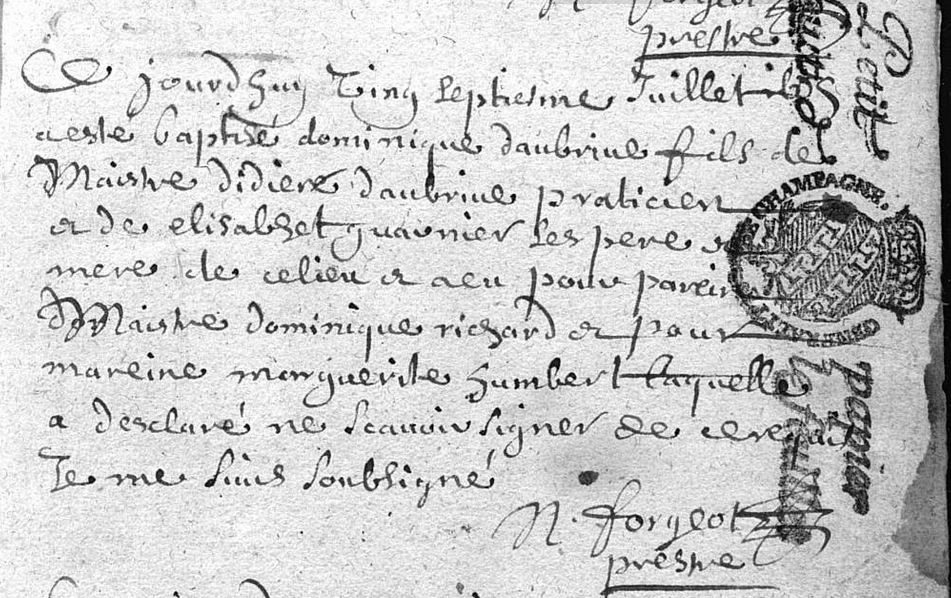 N. forgeot
prestre
Ce jourdhuy Ving septiesme Juillet
a este baptisé dominique daubrive fils de
Maistre didiere daubrive praticien
et de elisabet guarnier les pere et
mere de ce lieu et a eu pour parein
Maistre dominique richard et pour
mareine marguerite humbert laquelle
a desclaré ne scavoir signer de ce requis
Je me suis soubsigné
N. forgeot
prestre
Petit
papier
CHAMPAGNE.